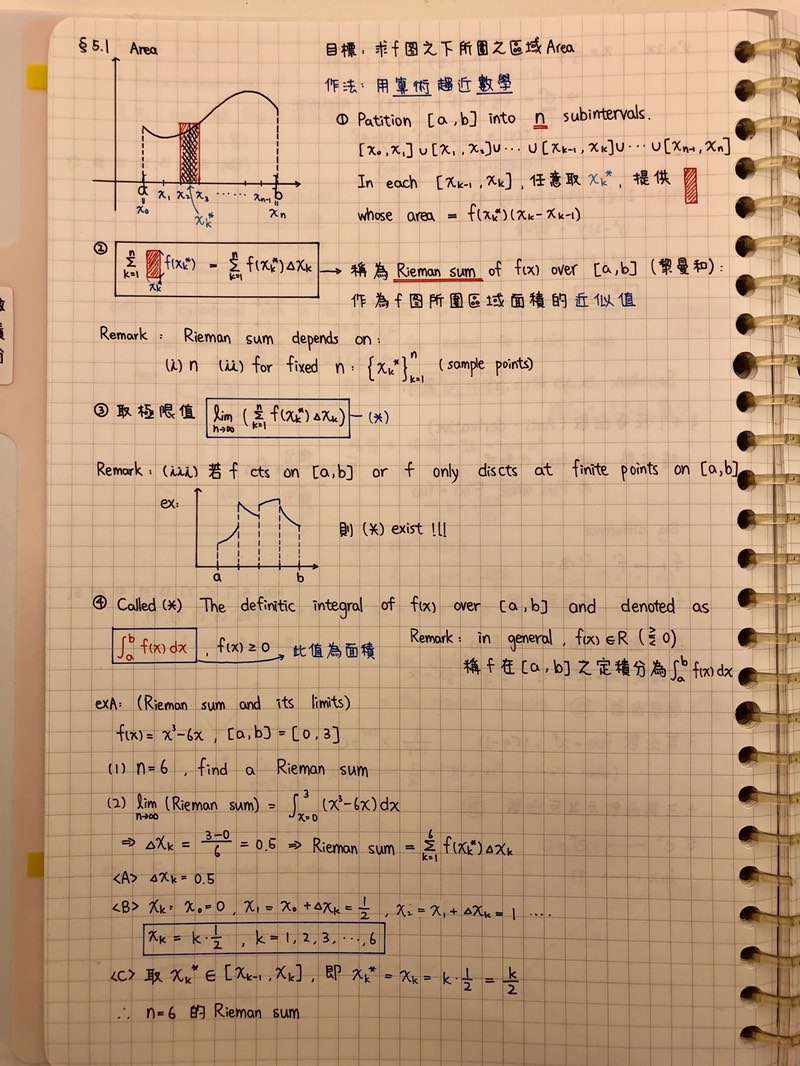 §5.1 Area
目標：求f图之下所圍之區域Area
作法：用算術趨近數學
① Patition [a,b] into n subintervals.
[x₀,x₁]∪[x₁,x₂]∪⋯∪[xₖ₋₁,xₖ]∪⋯∪[xₙ₋₁,xₙ]
In each [xₖ₋₁,xₖ],任意取 xₖ*, 提供
whose area = f(xₖ*)(xₖ-xₖ₋₁)
a b
x₀ x₁ x₂ x₃ ⋯⋯ xₙ₋₁ xₙ
xₖ*
② Σₖ₌₁ⁿ f(xₖ*) = Σₖ₌₁ⁿ f(xₖ*)Δxₖ → 稱為 Rieman sum of f(x) over [a,b] (黎曼和):
xₖ*
作為f图所圍區域面積的近似值
Remark: Rieman sum depends on:
(i) n (ii) for fixed n: {xₖ*}ₖ₌₁ⁿ (sample points)
③ 取極限值 lim n→∞ (Σₖ₌₁ⁿ f(xₖ*)Δxₖ) —(*)
Remark: (iii) 若 f cts on [a,b] or f only discts at finite points on [a,b]
ex:
則 (*) exist !!!
a b
④ Called (*) The definitic integral of f(x) over [a,b] and denoted as
∫ₐᵇ f(x)dx , f(x)≥0 → 此值為面積
Remark: in general, f(x)∈R (⪌0)
稱f在[a,b]之定積分為∫ₐᵇ f(x)dx
exA: (Rieman sum and its limits)
f(x)= x³-6x , [a,b]=[0,3]
(1) n=6 , find a Rieman sum
(2) lim n→∞ (Rieman sum) = ∫ₓ₌₀³ (x³-6x)dx
⇒ Δxₖ = (3-0)/6 = 0.5 ⇒ Rieman sum = Σₖ₌₁⁶ f(xₖ*)Δxₖ
<A> Δxₖ=0.5
<B> xₖ: x₀=0, x₁=x₀+Δxₖ=1/2, x₂=x₁+Δxₖ=1 ....
xₖ=k·1/2 , k=1,2,3,⋯,6
<C> 取 xₖ*∈[xₖ₋₁,xₖ], 即 xₖ*=xₖ=k·1/2=k/2
∴ n=6 的 Rieman sum